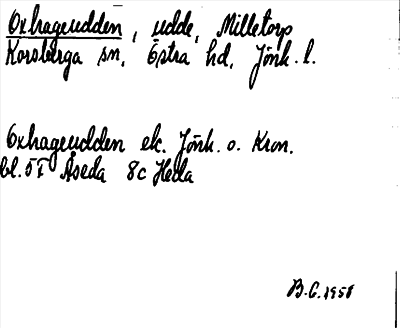 Oxhageudden, udde, Milletorp
Korsberga sn, Östra hd, Jönk. l.
Oxhageudden ek. Jönk. o. Kron.
bl. 5F Åseda 8c Hella
B.G. 1958